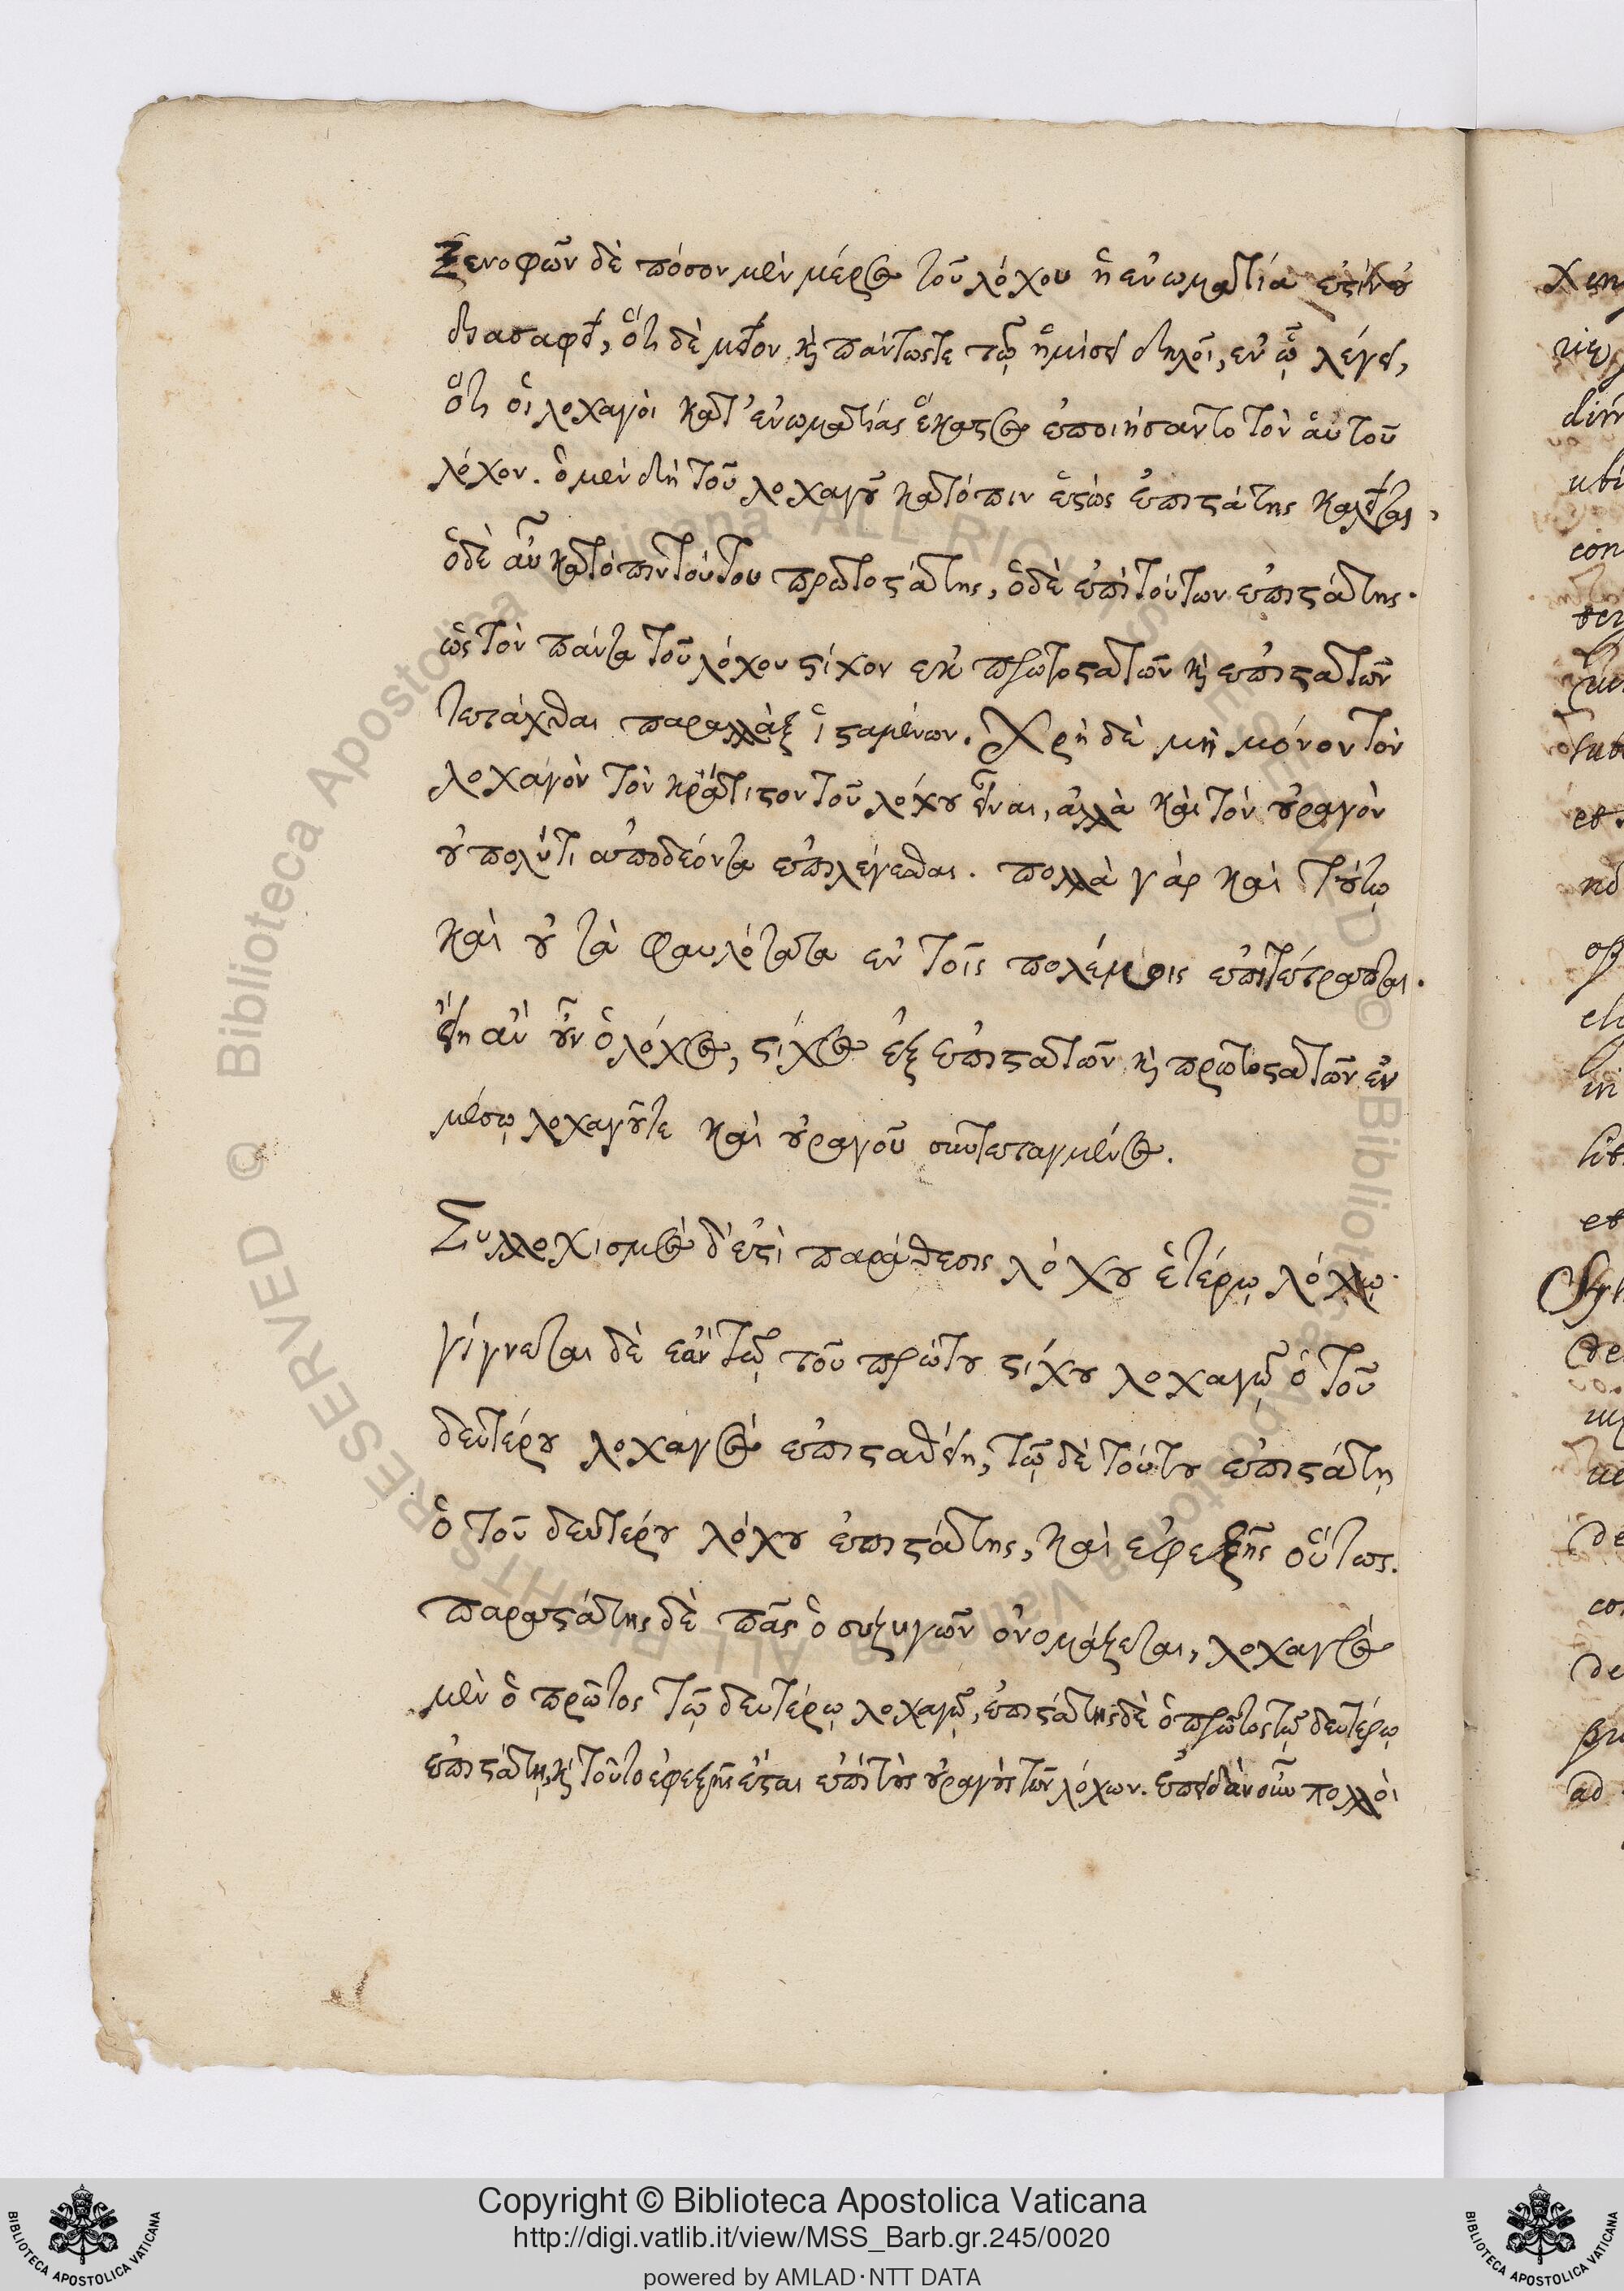 Ξενοφῶν δὲ πόσον μὲν μέρος τοῦ λόχου ἡ ἐνωμοτία ἐστὶν οὐ
διασαφεῖ, ὅτι δὲ μεῖον ἢ πάντωστε τῷ ἡμίσει δηλοῖ, ἐν ᾧ λέγει,
ὅτι οἱ λοχαγοὶ κατ' ἐνωμοτίας ἕκαστος ἐποιήσαντο τὸν αὑτοῦ
λόχον. ὁ μὲν δὴ τοῦ λοχαγοῦ κατόπιν ἑστὼς ἐπιστάτης καλεῖται,
ὁ δὲ αὖ κατόπιν τούτου πρωτοστάτης, ὁ δὲ ἐπὶ τούτων ἐπιστάτης.
ὡς τὸν πάντα τοῦ λόχου στίχον ἐκ πρωτοστατῶν καὶ ἐπιστατῶν
τετάχθαι παραλλὰξ ἱσταμένων. Χρὴ δὲ μὴ μόνον τὸν
λοχαγὸν τὸν κράτιστον τοῦ λόχου εἶναι, ἀλλὰ καὶ τὸν οὐραγὸν
οὐ πολύ τι ἀποδέοντα ἐπιλέγεσθαι. πολλὰ γὰρ καὶ τούτῳ
καὶ οὐ τὰ φαυλότατα ἐν τοῖς πολέμοις ἐπιτέτραπται.
εἴη ἂν οὖν ὁ λόχος, στίχος ἐξ ἐπιστατῶν καὶ πρωτοστατῶν ἐν
μέσῳ λοχαγοῦ τε καὶ οὐραγοῦ συντεταγμένος.
Συλλοχισμὸς δ' ἐστὶ παράθεσις λόχου ἑτέρῳ λόχῳ.
γίγνεται δὲ ἐὰν τῷ τοῦ πρώτου στίχου λοχαγῷ ὁ τοῦ
δευτέρου λοχαγὸς ἐπισταθείη, τῷ δὲ τούτου ἐπιστάτῃ
ὁ τοῦ δευτέρου λόχου ἐπιστάτης, καὶ ἐφεξῆς οὕτως.
παραστάτης δὲ πᾶς ὁ συζυγῶν ὀνομάζεται, λοχαγὸς
μὲν ὁ πρῶτος τῷ δευτέρῳ λοχαγῷ, ἐπιστάτης δὲ ὁ πρῶτος τῷ δευτέρῳ
ἐπιστάτῃ, καὶ τοῦτο ἐφεξῆς ἔσται ἐπὶ τοὺς οὐραγοὺς τῶν λόχων. ἐπειδὰν οὖν πολλοὶ
Copyright © Biblioteca Apostolica Vaticana
http://digi.vatlib.it/view/MSS_Barb.gr.245/0020
powered by AMLAD·NTT DATA